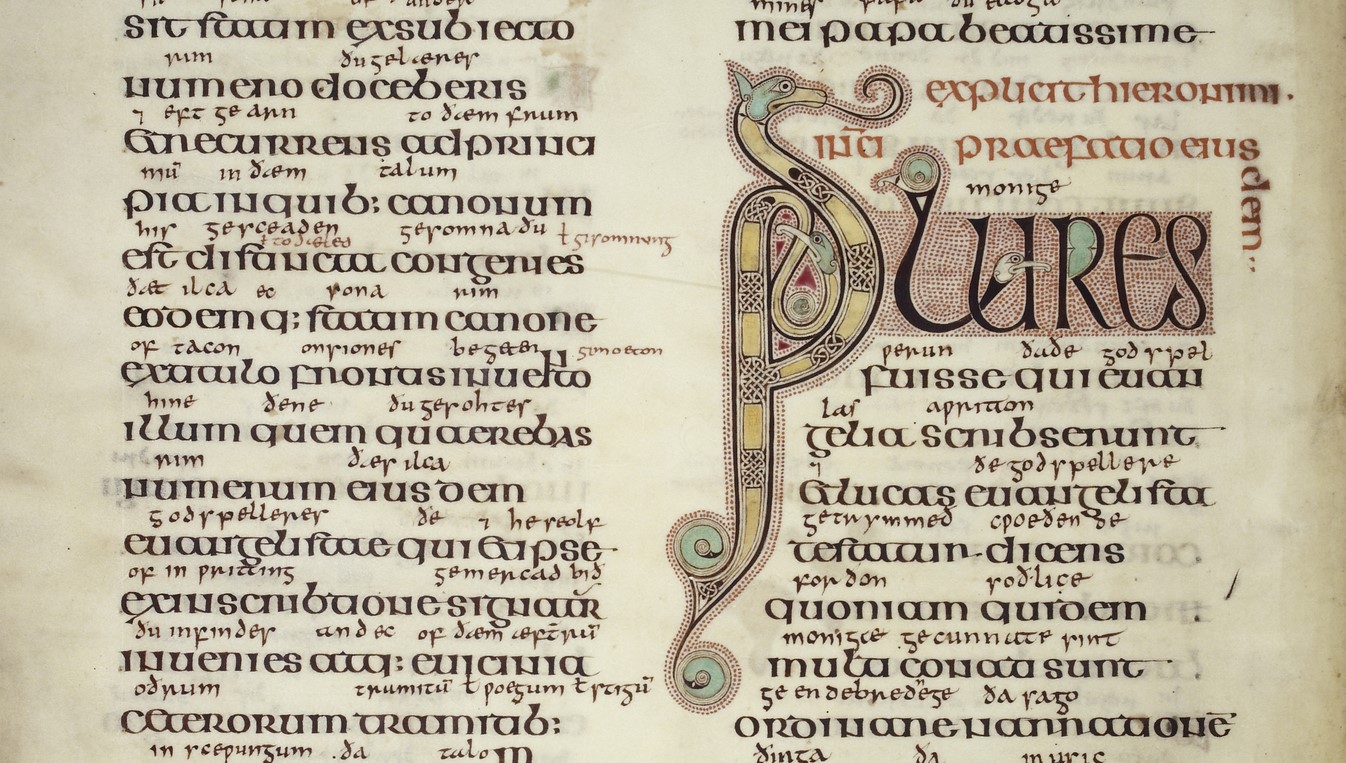 sit statim exsubiecto
rim ðu gelærnes
numero doceberis
⁊ eft gearn to ðæm frum
Et recurrens ad princi
in ðæm talum
pia inquib; canonum
his gesceaden geсomnadu ł gisomnung
ł todæled
est distincta congeries
ðæt ilca ec sona rim
eodemq; statim canone
of tacon onsiones begeten
extitulo frontis inuento
hine ðene ðu gesohtes
illum quem quaerebas
rim ðæs ilca
numerum eiusdem
godspelleres ðe ⁊ he seolf
euangelistae qui et ipse
of inwritting gemercad bið
exinscribtione signatur
ðu infindes and ec of ðæm æfterrū
inuenies atq; euicinia
oðrum tramitū ł woegum ł stigū
ceterorum tramitib;
in sceawungum ða talo
mei papa beatissime
explicit hieronimi.
incī praefatio eius
dem
monige
PLURES
werun ðaðe godspel
fuisse qui euan
las awritton
gelia scribserunt
⁊ ðe godspellere
et lucas euangelista
getrymmed cwoeðende
testatur dicens
forðon soðlice
quoniam quidem
monigæ gecunnate sint
multi conati sunt
ge endebredege ða sago
ordinare narrationē
ðinga ða